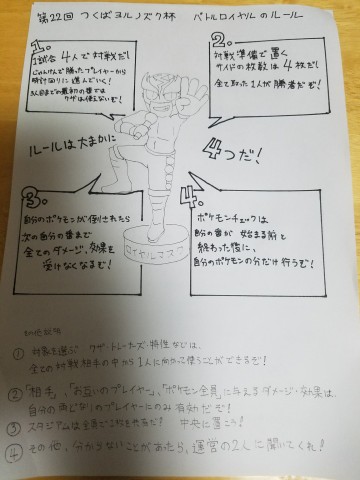 第22回 つくばヨルノズク杯 バトルロイヤルのルール
1.
1試合 4人で対戦だ!
じゃんけんで勝ったプレイヤーから
時計回りに進んでいく!
3人目までの最初の番では
ワザは使えないぞ!
2.
対戦準備で置く
サイドの枚数は 4枚だ!
全て取った1人が勝者だぞ!
ルールは大まかに
4つだ!
3.
自分のポケモンが倒されたら
次の自分の番まで
全てのダメージ、効果を
受けなくなるぞ!
4.
ポケモンチェックは
自分の番が 始まる前と
終わった後に、
自分のポケモンの分だけ行うぞ!
ロイヤルマスク
その他説明
① 対象を選ぶ ワザ・トレーナーズ・特性などは、
全ての対戦相手の中から1人に向かって使うことができるぞ!
② 「相手」、「お互いのプレイヤー」、「ポケモン全員」に与えるダメージ・効果は、
自分の両どなりのプレイヤーにのみ 有効だぞ!
③ スタジアムは全員で1枚を使うぞ! 中央に置こう!
④ その他、分からないことがあったら、運営の2人に聞いてくれ!